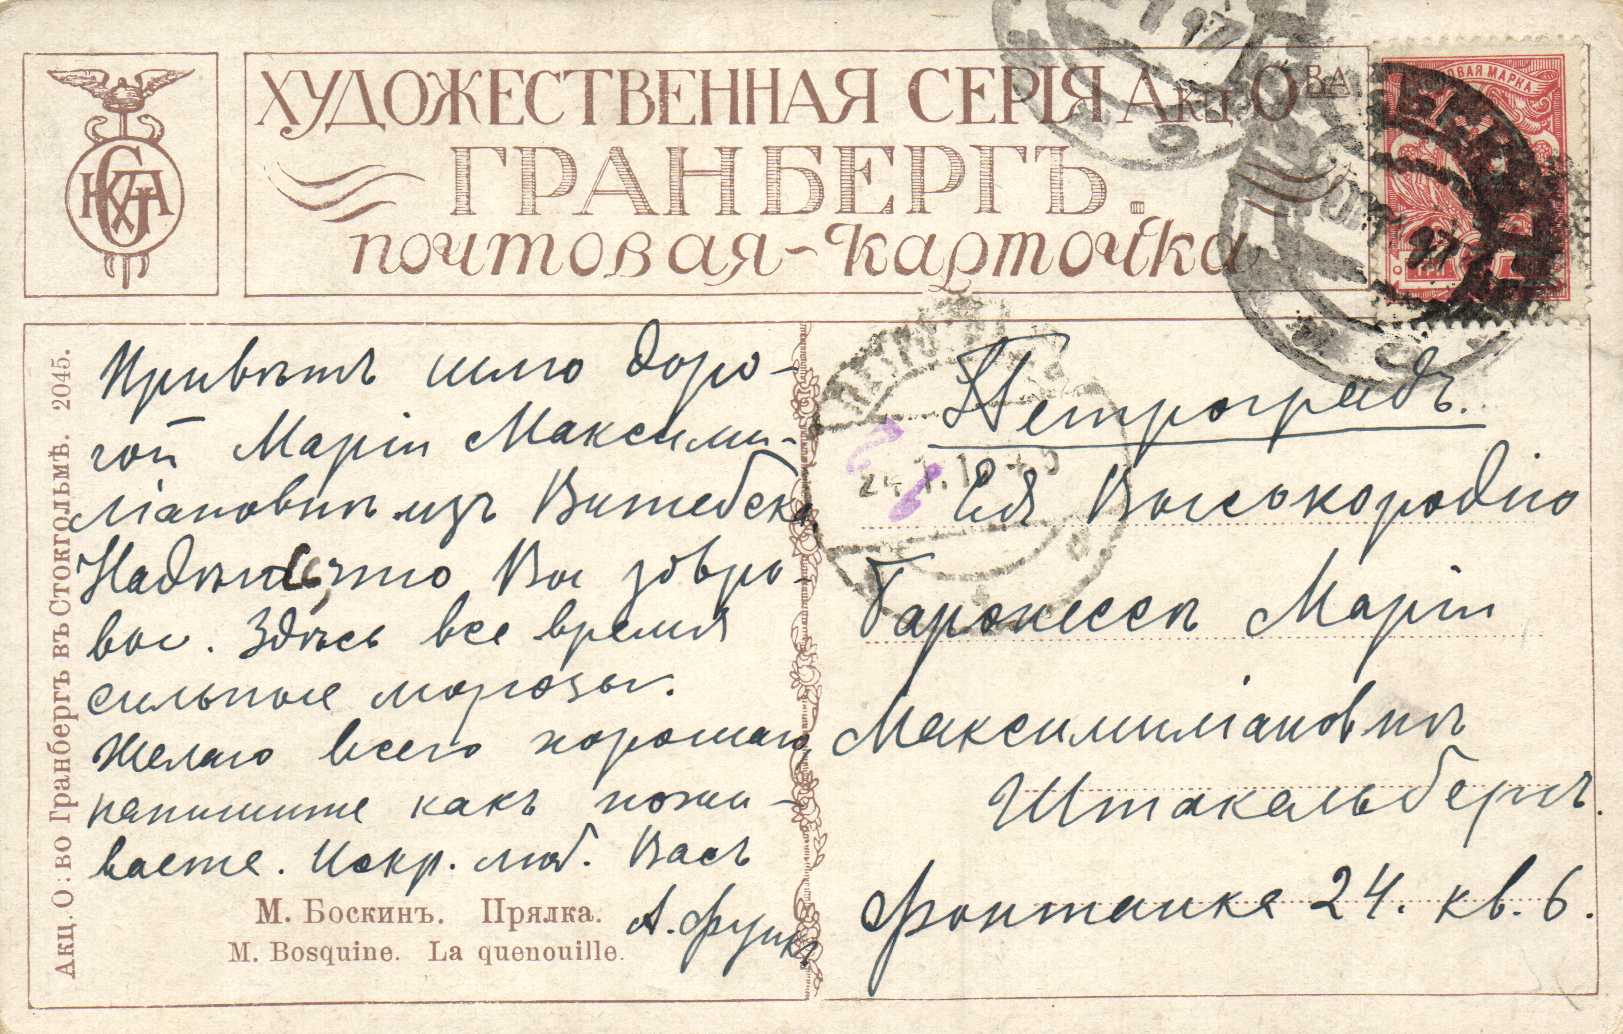 ХУДОЖЕСТВЕННАЯ СЕРІЯ АКЦ. О ВА
ГРАНБЕРГЪ.
почтовая-карточка
ПОЧТОВАЯ МАРКА
Акц. О: во Гранбергъ въ Стокгольмѣ. 2045.
Привѣтъ шлю доро-
гой Маріи Максими-
ліановнѣ изъ Витебска
Надѣюсь, что Вы здоро-
вы. Здѣсь все время
сильные морозы.
Желаю всего хорошаго,
напишите какъ пожи-
ваете. Искр. люб. Васъ
А. Функъ
М. Боскинъ. Прялка.
M. Bosquine. La quenouille.
Петроградъ.
Ея Высокородію
Баронессѣ Маріи
Максимиліановнѣ
Штакельбергъ.
Фонтанка 24. кв. 6.